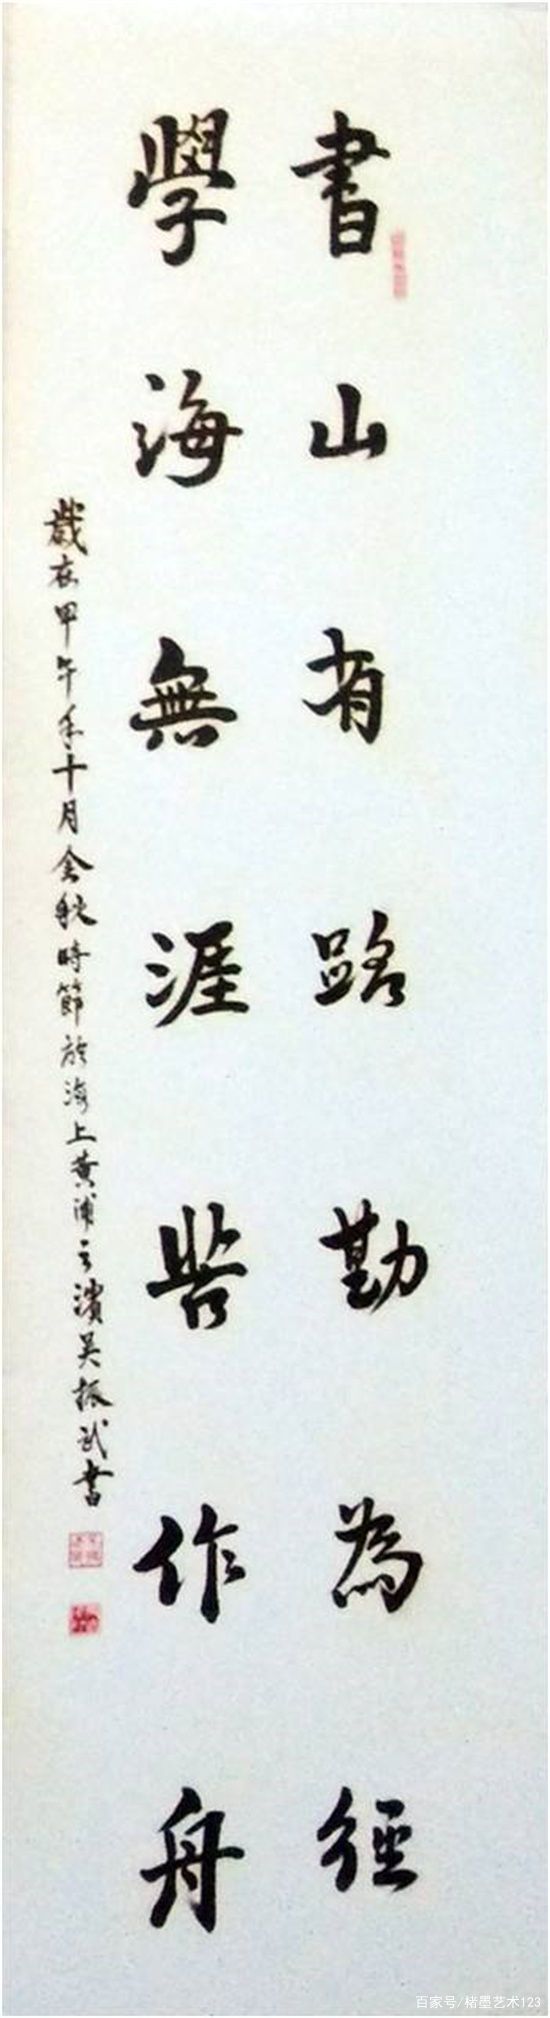 書山有路勤為徑
學海無涯苦作舟
歲在甲午年十月金秋時節於海上黄浦之濱吴振武書
百家号/楮墨艺术123